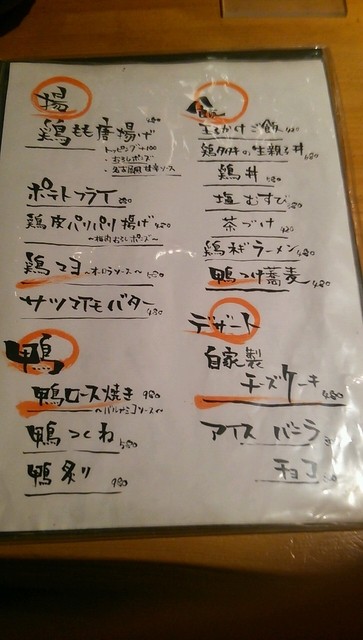 揚
鶏もも唐揚げ
トッピング+100
・おろしポン酢
・名古屋風甘辛ソース
ポテトフライ
鶏皮パリパリ揚げ
～梅肉おろしポンズ～
鶏マヨ ～オーロラソース～
サツマイモバター
鴨
鴨ロース焼き 980
～バルサミコソース～
鴨つくね 580
鴨炙り 980
飯
玉子かけご飯
鶏肉丼の生親子丼
鶏丼 580
塩むすび
茶づけ
鶏ネギラーメン
鴨つけ蕎麦
デザート
自家製
チーズケーキ 480
アイス バニラ
チョコ